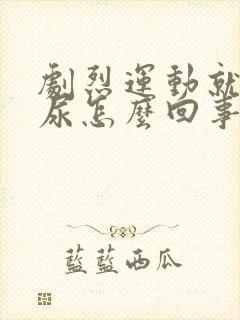 劇烈運動就
尿怎麼回事
藍藍西瓜